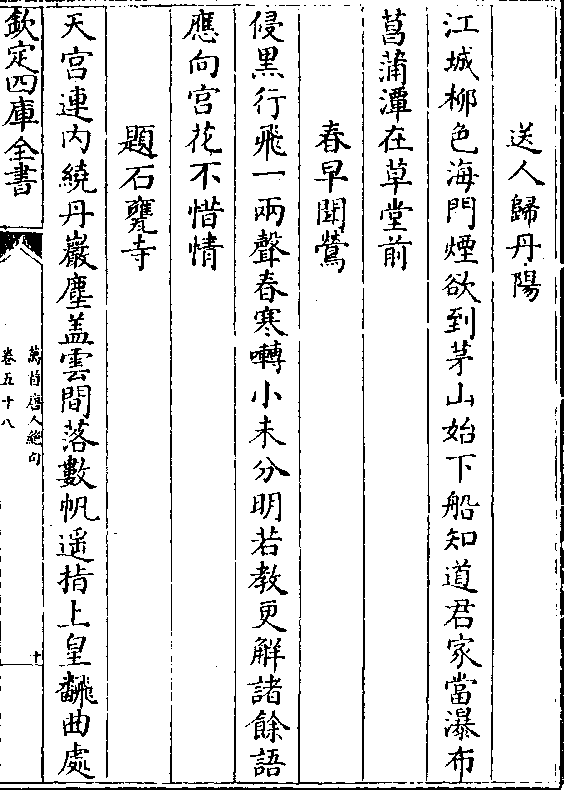 送人歸丹陽
江城柳色海門煙欲到茅山始下船知道君家當瀑布
菖蒲潭在草堂前
春早聞鶯
侵黑行飛一兩聲春寒囀小未分明若教更解諸餘語
應向宮花不惜情
題石甕寺
天宮連內繞丹巖塵蓋雲間落數帆遥指上皇翻曲處
欽定四庫全書
萬首唐人絶句
卷五十八
十